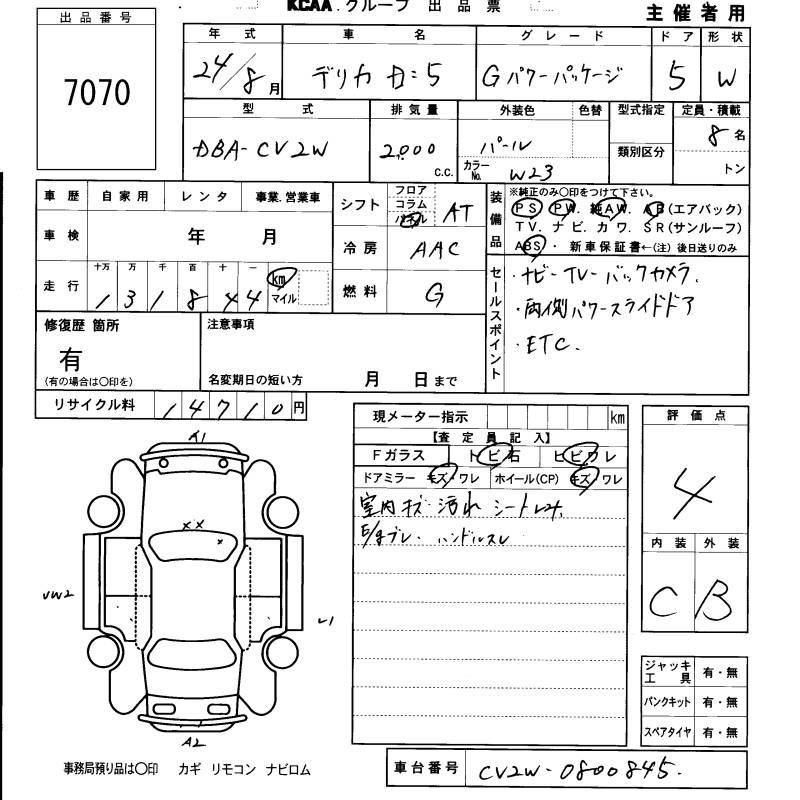 KCAA グループ 出品票
主催者用
出品番号
7070
年式 車名 グレード ドア 形状
24/8月 デリカ D:5 Gパワーパッケージ 5 W
型式 排気量 外装色 色替 型式指定 定員・積載
DBA-CV2W 2000 c.c. パール 8名
カラーNo. W23 類別区分 トン
車歴 自家用 レンタ 事業.営業車
車検 年 月
走行 十万 万 千 百 十 一 km マイル
1 3 1 8 4 4
シフト フロア コラム パネル AT
冷房 AAC
燃料 G
装備品 ※純正のみ〇印をつけて下さい。
PS. PW. 純AW. AB(エアバック)
TV. ナビ. カワ. SR(サンルーフ)
ABS・ 新車保証書←(注) 後日送りのみ
セールスポイント
・ナビー TVー バックカメラ.
・両側パワースライドドア
・ETC.
修復歴 箇所
有
(有の場合は〇印を)
注意事項
名変期日の短い方 月 日まで
リサイクル料 14710円
現メーター指示 km
【査定員記入】
Fガラス トビ石 ヒビワレ
ドアミラー キズ・ワレ ホイール(CP) キズ・ワレ
室内キズ・汚れ シート
ハンドルスレ
評価点
4
内装 外装
C B
A1
XX
x
UW2
L1
A2
ジャッキ工具 有・無
パンクキット 有・無
スペアタイヤ 有・無
事務局預り品は〇印 カギ リモコン ナビロム
車台番号 CV2W-0800845.